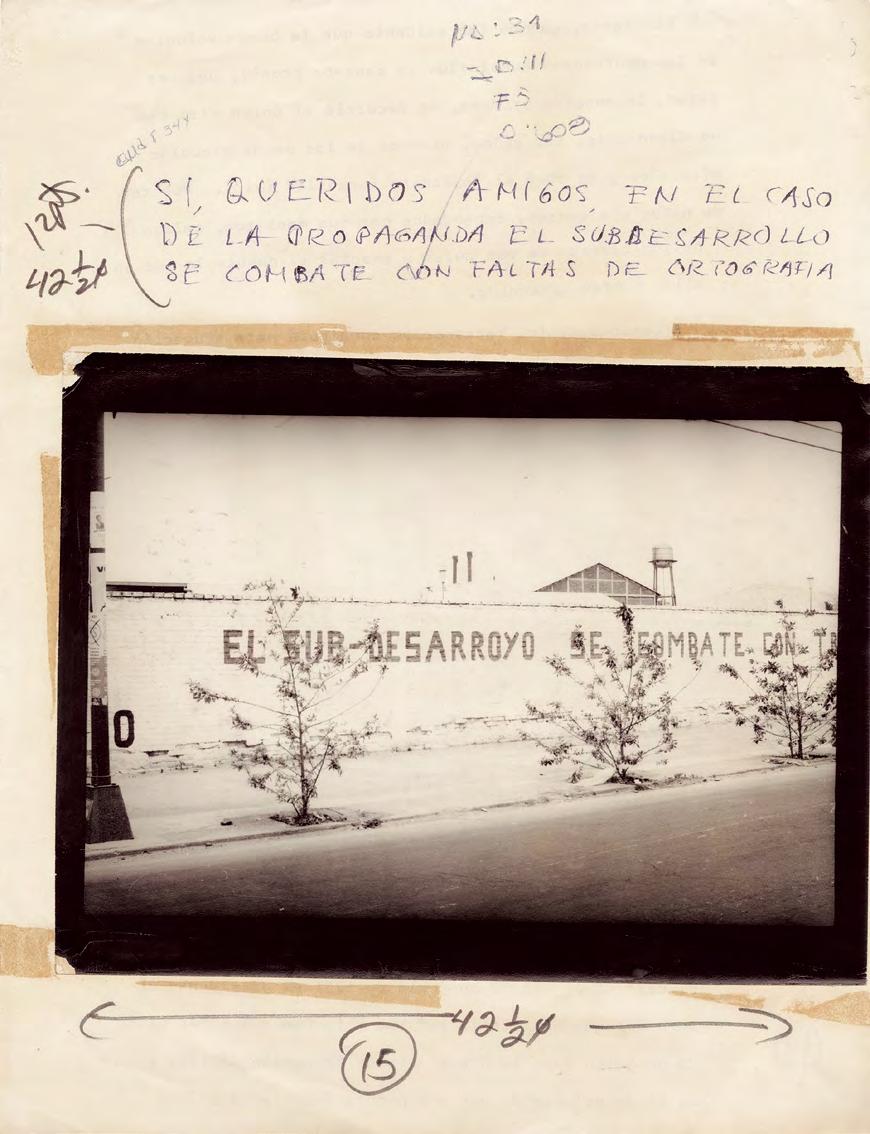 ND: 31
ID: 11
F5
0:608
12 ps.
42 ½ ¢
SI, QUERIDOS AMIGOS, EN EL CASO
DE LA PROPAGANDA EL SUBDESARROLLO
SE COMBATE CON FALTAS DE ORTOGRAFIA
EL SUB-DESARROYO SE COMBATE CON TR
O
42 ½ ¢
15